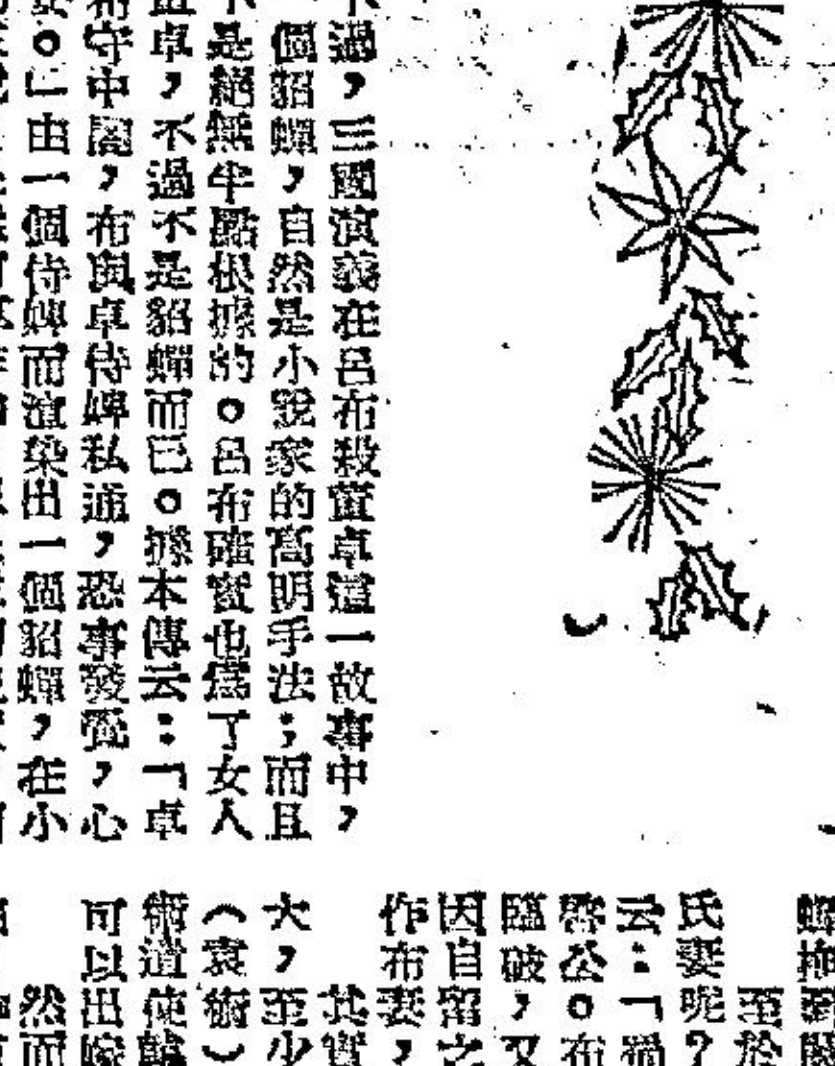 不過，三國演義在呂布殺董卓這一故事中，
一個貂蟬，自然是小說家的高明手法；而且
是絕無半點根據的。呂布確實也爲了女人
卓，不過不是貂蟬而已。據本傳云：「卓
布守中閤，布與卓侍婢私通，恐事發覺，心
。」由一個侍婢而渲染出一個貂蟬，在小
至於
氏妻呢？
云：「
公。布
臨破，又
因自留之
作布妻，
其實
大，至少
（袁術）
術遣使韓
可以出嫁
然而